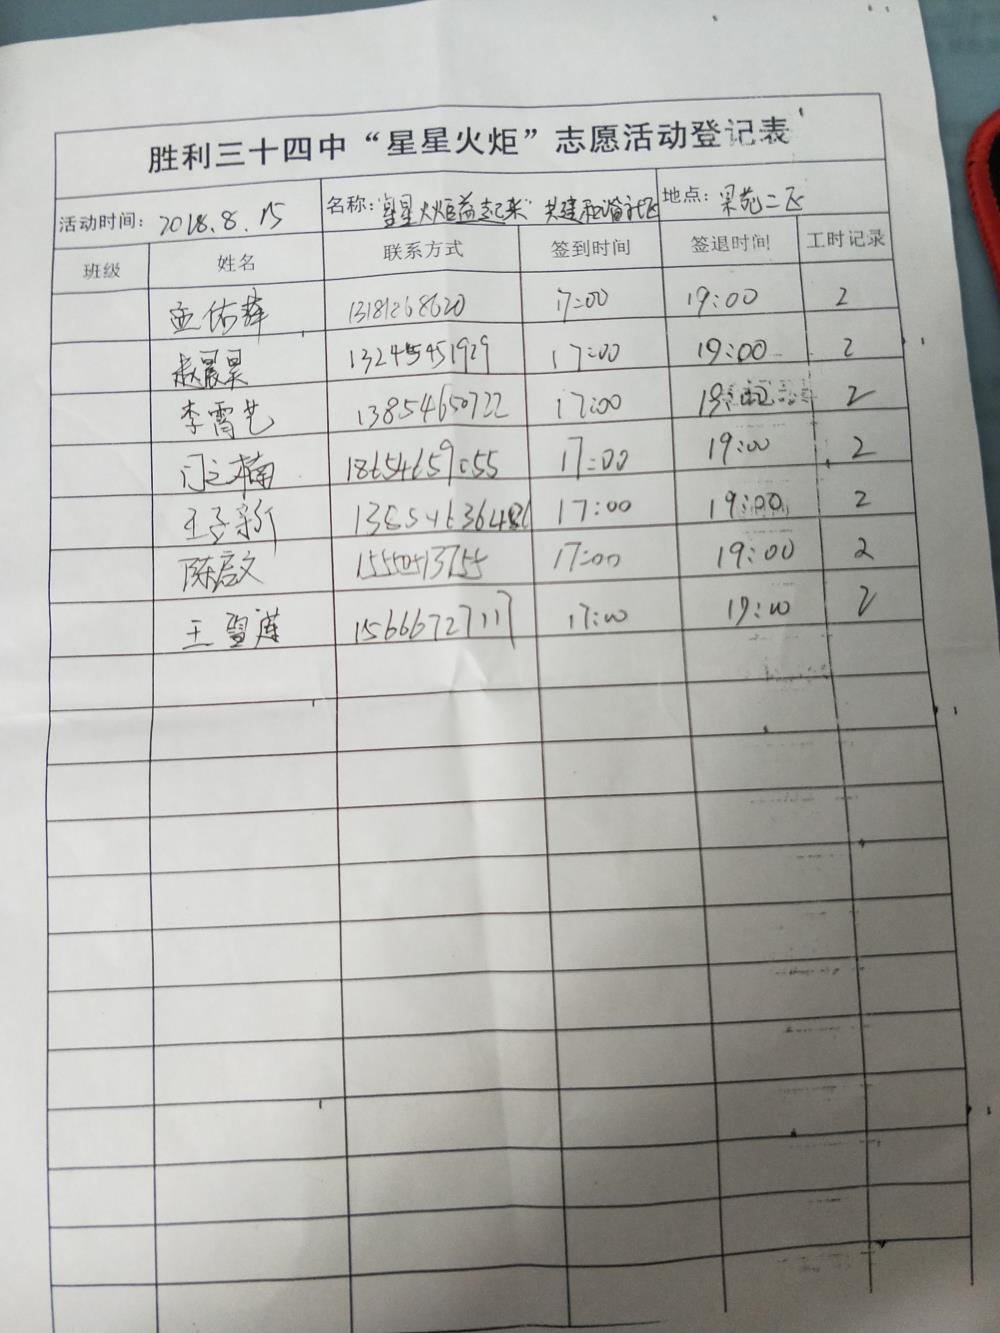 胜利三十四中“星星火炬”志愿活动登记表
活动时间：2018.8.15 名称：“星星火炬益起来”共建和谐社区 地点：景苑二区
班级 姓名 联系方式 签到时间 签退时间 工时记录
孟佑 13181268620 17:00 19:00 2
赵晨昊 13245451929 17:00 19:00 2
李霄艺 13854650722 17:00 19:00 2
门之楠 18654659055 17:00 19:00 2
王子新 17:00 19:00 2
陈启文 17:00 19:00 2
王雪莲 15666727117 17:00 19:00 2